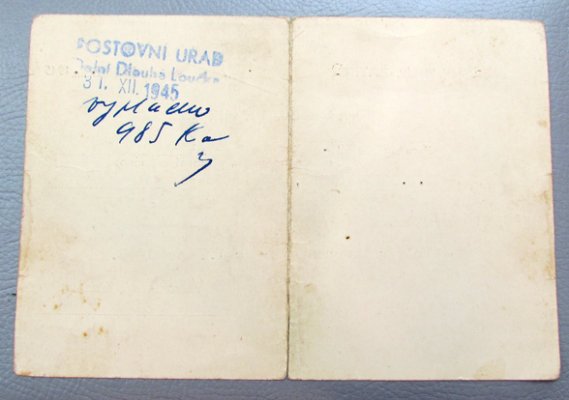 POSTOVNI URAD
Dolní Dlouhá Loučka
31. XII. 1945
vyplaceno
985 Kčs